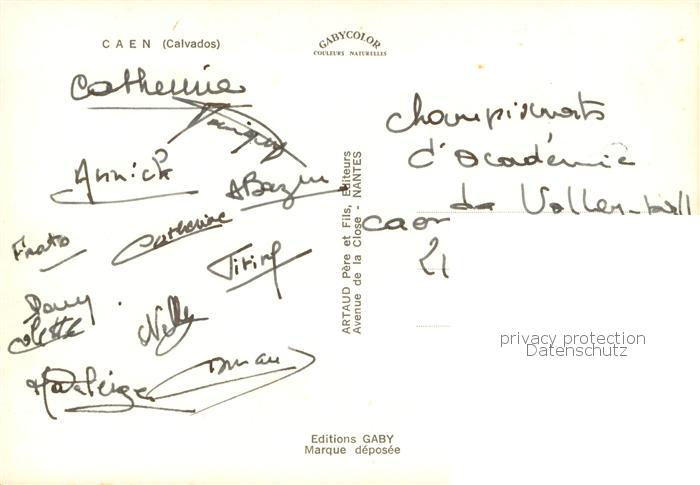 CAEN (Calvados)
GABYCOLOR
COULEURS NATURELLES
Catherine
Annick
ABazin
Catherine
Titine
Dany
Colette
Nelly
ARTAUD Père et Fils, Editeurs
Avenue de la Close - NANTES
Championnats
d'Académie
de Volley-ball
Caen
21
privacy protection
Datenschutz
Editions GABY
Marque déposée